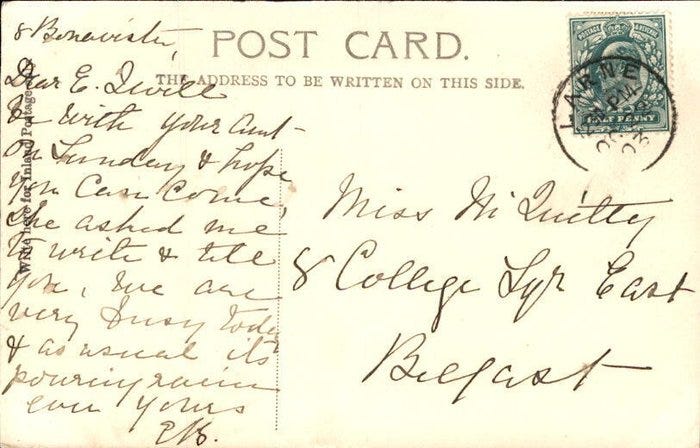 8 Bonavista,
Dear E. I will
be with your aunt
on Sunday & hope
you can come,
she asked me
to write & tell
you, we are
very busy today
& as usual its
pouring rain
ever yours
POST CARD.
THE ADDRESS TO BE WRITTEN ON THIS SIDE.
Write here for Inland Postage only
LARNE
PM
OC
03
HALF PENNY
Miss McQuitty
8 College Sqr East
Belfast